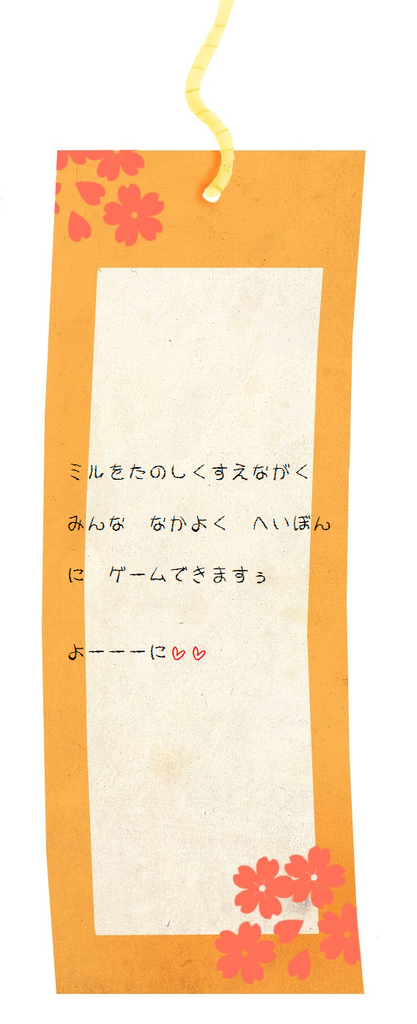 ミルをたのしくすえながく
みんな　なかよく　へいぼん
に　ゲームできますぅ
よーーーに♡♡